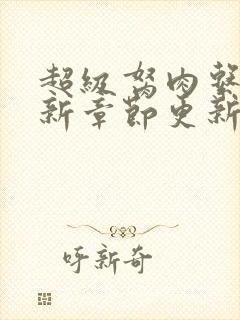 超级胬肉系
新章节更新
呼新奇